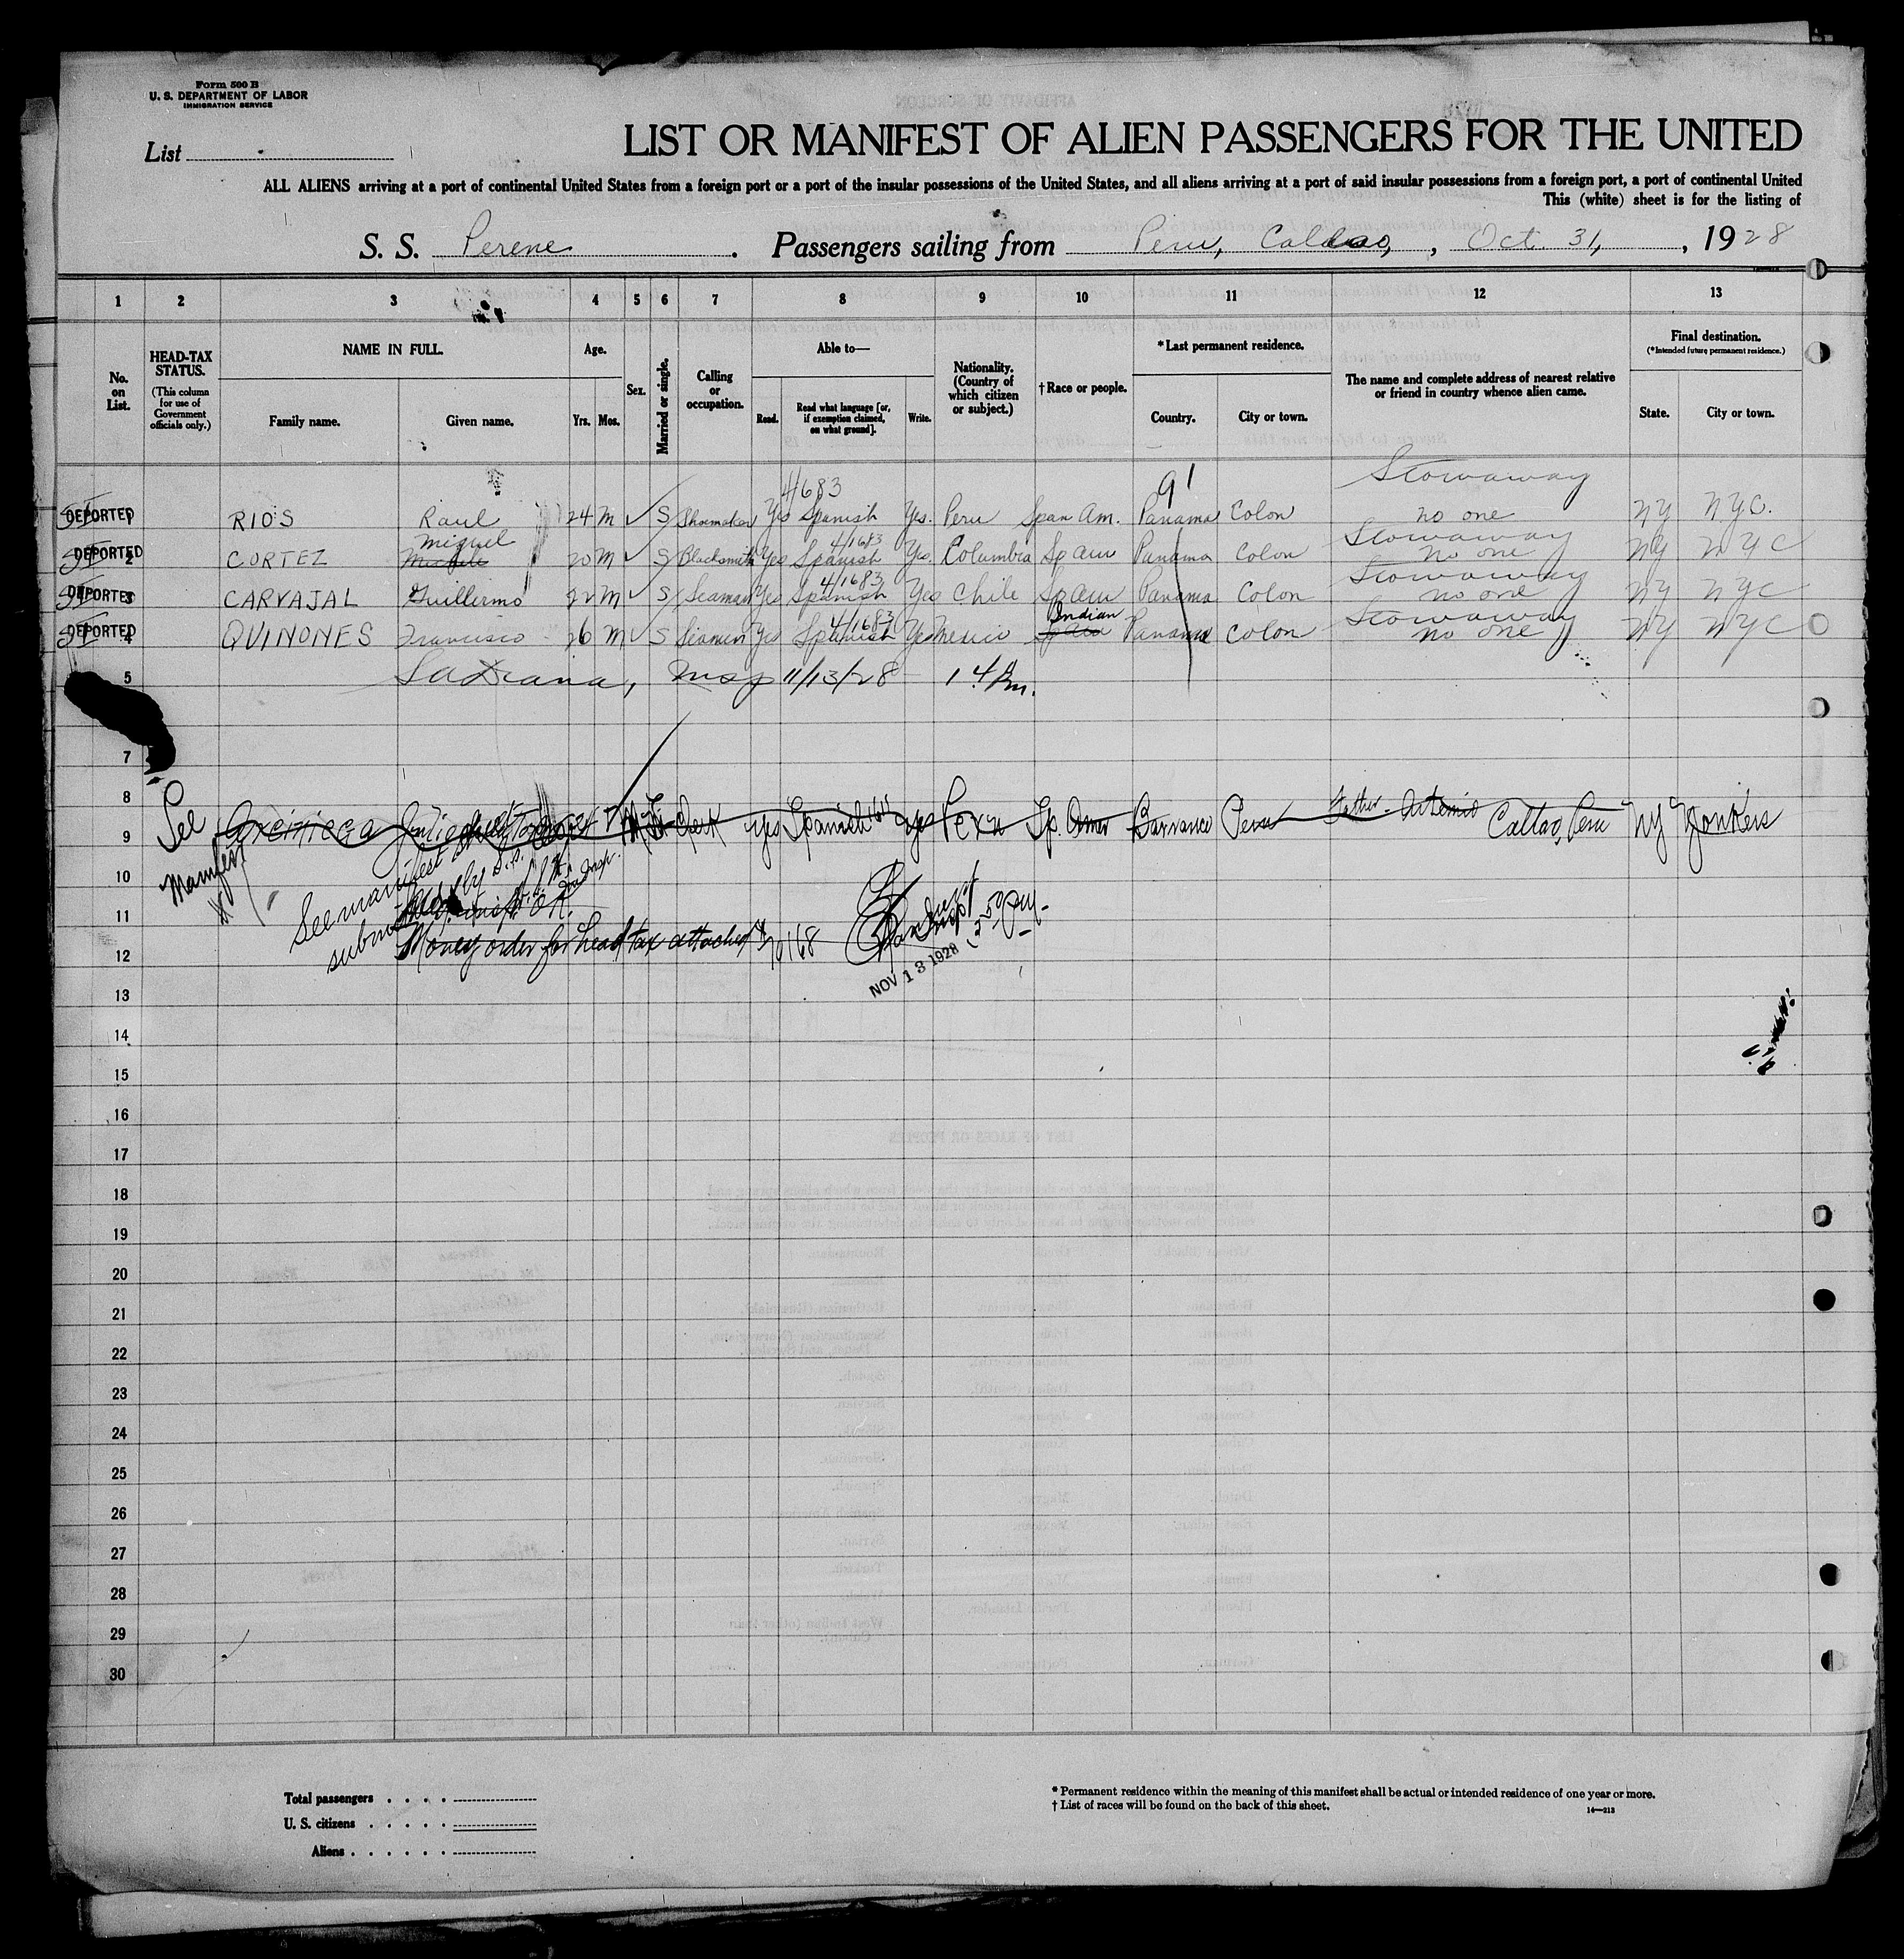 Form 500 B
U. S. DEPARTMENT OF LABOR
IMMIGRATION SERVICE
List
LIST OR MANIFEST OF ALIEN PASSENGERS FOR THE UNITED
ALL ALIENS arriving at a port of continental United States from a foreign port or a port of the insular possessions of the United States, and all aliens arriving at a port of said insular possessions from a foreign port, a port of continental United
This (white) sheet is for the listing of
S. S. Perene. Passengers sailing from Peru, Callao, , Oct. 31, , 1928
1 2 3 4 5 6 7 8 9 10 11 12 13
No. on List.
HEAD-TAX STATUS.
(This column for use of Government officials only.)
NAME IN FULL.
Family name. Given name.
Age.
Yrs. Mos.
Sex.
Married or single.
Calling or occupation.
Able to—
Read. Read what language [or, if exemption claimed, on what ground]. Write.
Nationality. (Country of which citizen or subject.)
† Race or people.
* Last permanent residence.
Country. City or town.
The name and complete address of nearest relative or friend in country whence alien came.
Final destination.
(* Intended future permanent residence.)
State. City or town.
4/683 91 Stowaway
DEPORTED 1 RIOS Raul 24 M S Shoemaker Yes Spanish Yes. Peru Span Am. Panama Colon no one NY NYC.
Miguel 4/1683 Stowaway
DEPORTED 2 CORTEZ 20 M S Blacksmith Yes Spanish Yes. Columbia Sp am Panama Colon no one NY NYC
4/1683 Stowaway
DEPORTED 3 CARVAJAL Guillermo 22 M S Seaman Yes Spanish Yes Chile Sp am Panama Colon no one NY NYC
4/1683 Indian Stowaway
DEPORTED 4 QUINONES Francisco 26 M S Seaman Yes Spanish Yes Mexico Sp am Panama Colon no one NY NYC
5 Insp 11/13/28 1 4 Pm.
7
8
See Julio 24 Clerk yes Spanish yes Peru Sp. Amer Barranco Peru Father - Artemio Callao, Peru NY Yonkers
9
Manifest
10
See manifest
11
12 Money order for head tax attached # 70168
NOV 13 1928
13
14
15
16
17
18
19
20
21
22
23
24
25
26
27
28
29
30
Total passengers . . . .
U. S. citizens . . . . .
Aliens . . . . . .
* Permanent residence within the meaning of this manifest shall be actual or intended residence of one year or more.
† List of races will be found on the back of this sheet.
14—213